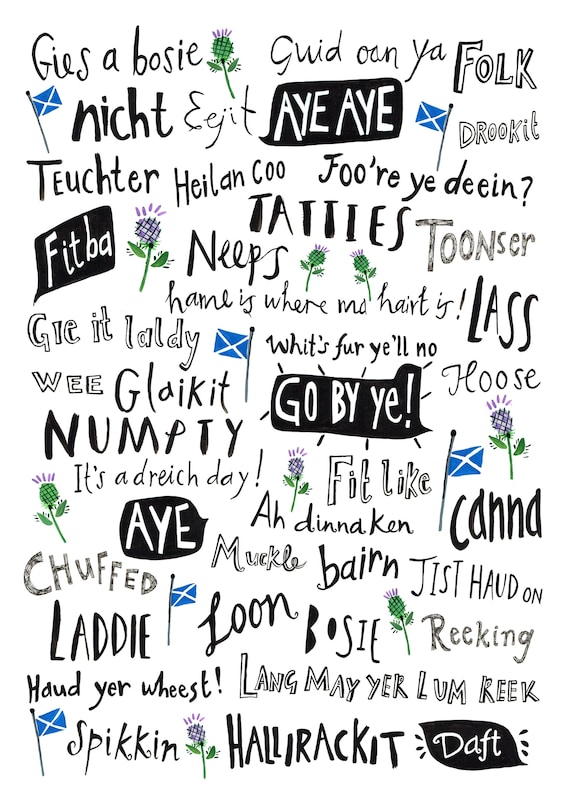 Gies a bosie Guid oan ya FOLK
nicht Eejit AYE AYE DROOKIT
TEUCHTER Heilan COO Foo're ye deein?
Fitba TATTIES TOONSER
NEEPS
hame is where ma hairt is! LASS
GIE it laldy Whit's fur ye'll no GO BY ye!
WEE Glaikit Hoose
NUMPTY
It's a dreich day! Fit like canna
AYE Ah dinna ken
CHUFFED Muckle bairn JIST HAUD ON
LADDIE Loon BOSIE Reeking
Haud yer wheest! LANG MAY YER LUM REEK
Spikkin HALLIRACKIT Daft